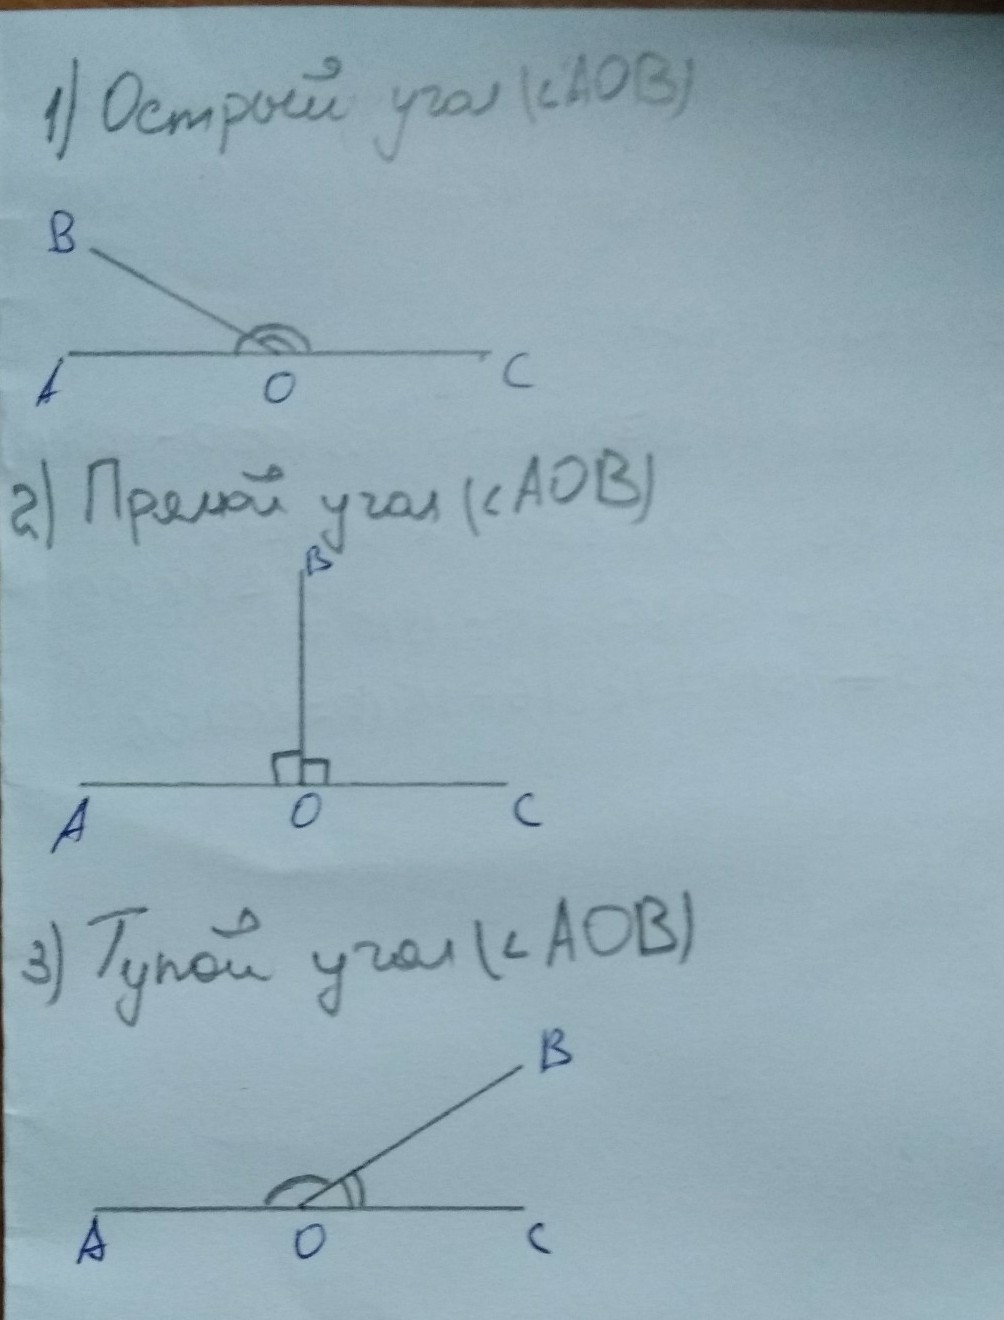 1) Острый угол (<AOB)
B
A O C
2) Прямой угол (<AOB)
B
A O C
3) Тупой угол (<AOB)
B
A O C